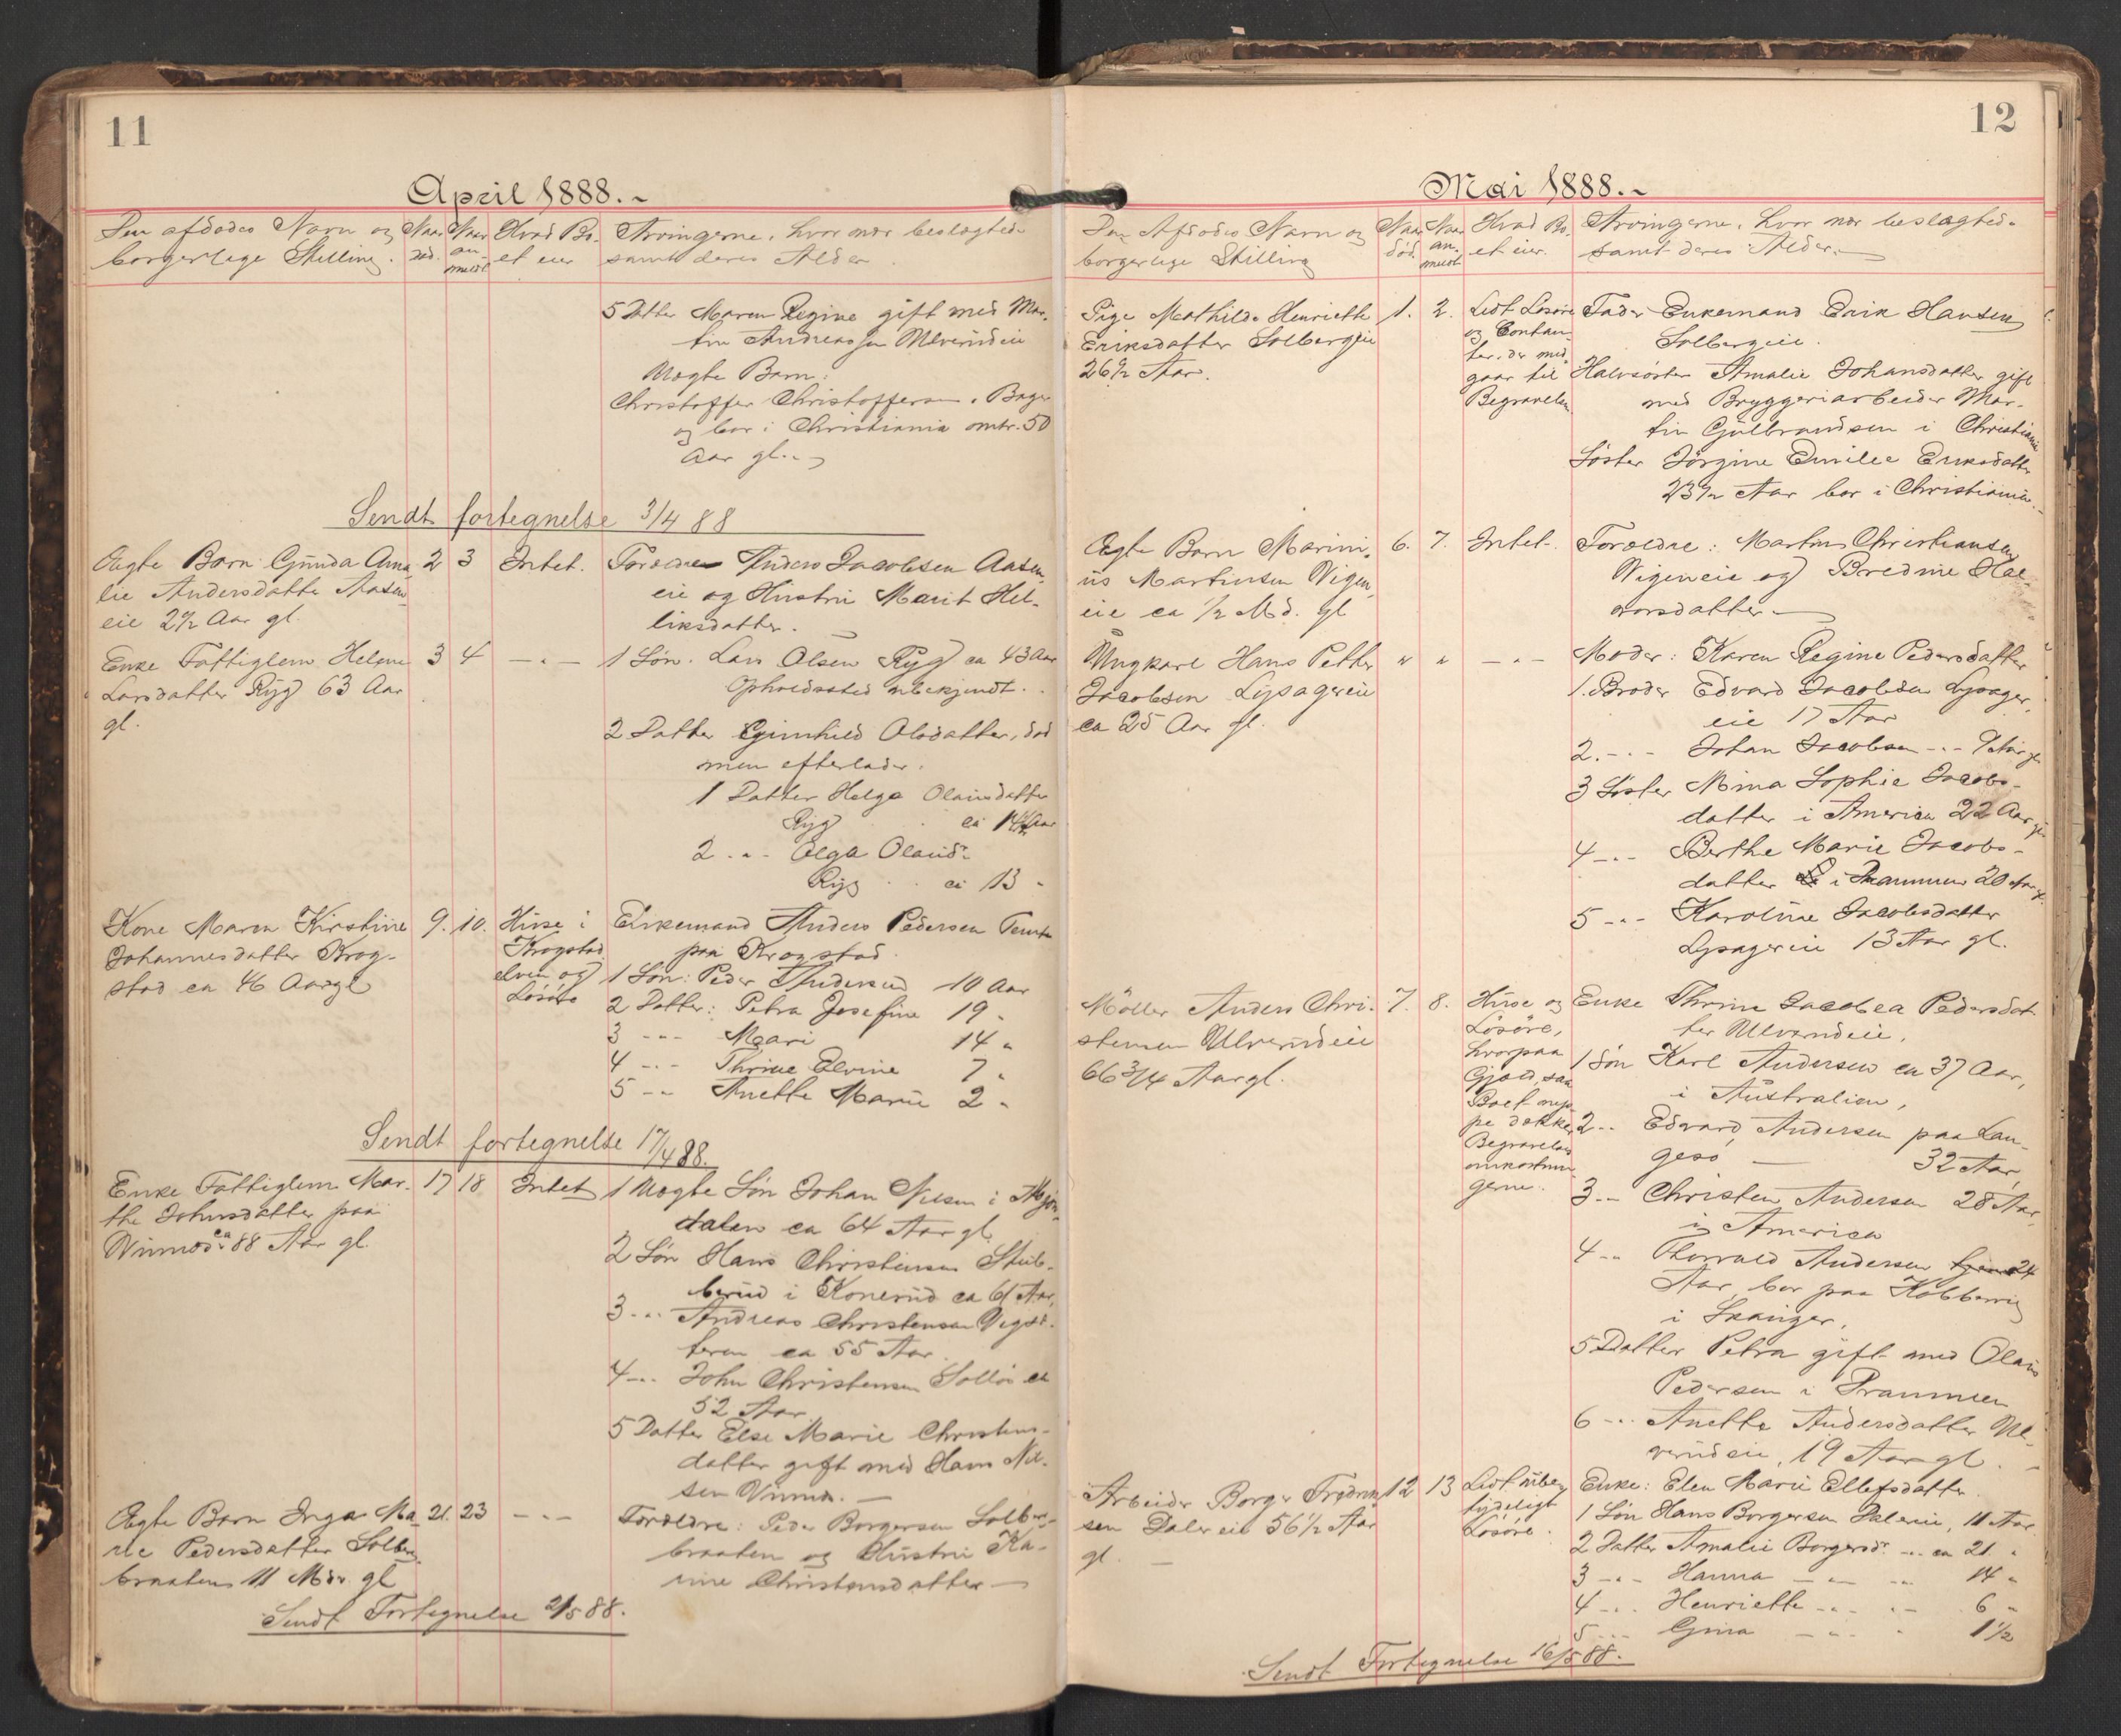 11
April 1888.~
Den afdødes Navn og
borgerlige Stilling.
Naar
død.
Naar
an-
meldt
Hvad Bo-
et eier
Arvingerne, hvor nær beslægtede
samt deres Alder
5 Datter Maren Regine gift med Mar-
tin Andreassen Ulverudeie
Uægte Barn:
Christoffer Christoffersen, Bager
og bor i Christiania omtr. 50
Aar gl.
Sendt fortegnelse 3/4 88
Ægte Barn Gunda Ama-
lie Andersdatter Aasen-
eie 2 1/2 Aar gl.
2
3
Intet.
Forældre Anders Jacobsen Aasen-
eie og Hustru Marit Hel-
liksdatter.
Enke Fattiglem Helene
Larsdatter Ryg 63 Aar
gl.
3
4
— " —
1 Søn. Lars Olsen Ryg ca 43 Aar
Opholdssted ubekjendt.
2 Datter Gunhild Olsdatter, død
men efterlader.
1 Datter Helga Olausdatter
Ryg ca 14 Aar
2 - " - Olga Olausd.
Ryg ca 13 "
Kone Maren Kirstine
Johannesdatter Krog-
stad ca 46 Aar gl
9.
10.
Huse i
Krogstad
elven og
Løsøre
Enkemand Anders Pedersen Tømte
paa Krogstad.
1 Søn: Peder Andersen 10 Aar
2 Datter: Petra Josefine 19 "
3 - " - Mari 14 "
4 - " - Thrine Elvine 7 "
5 - " - Anette Marie 2 "
Sendt fortegnelse 17/4 88.
Enke Fattiglem Mar-
the Johnsdatter paa
ca 88 Aar gl.
17
18
Intet
1 Uægte Søn Johan Nilsen i Mjøn-
dalen ca 64 Aar gl.
2 Søn Hans Christensen Stub-
berud i Konerud ca 61 Aar,
3 - " - Andreas Christensen
ca 55 Aar
4 - " - John Christensen Solløs ca
52 Aar
5 Datter Else Marie Christens-
datter gift med Hans Nil-
sen
Ægte Barn Inga Ma-
rie Pedersdatter Solberg-
braaten 11 Mdr. gl
21.
23
— " —
Forældre: Peder Borgersen Solberg-
braaten og Hustru Ka-
rine Christensdatter —
Sendt Fortegnelse 2/5 88.
12
Mai 1888.~
Den Afdødes Navn og
borgerlige Stilling
Naar
død.
Naar
an-
meldt
Hvad Bo-
et eier.
Arvingerne, hvor nær beslægtede
samt deres Alder.
Pige Mathilde Henriette
Eriksdatter Solbergeie
26 1/2 Aar.
1.
2.
Lidt Løsøre
og Contan-
ter, der med-
gaar til
Begravelsen
Fader Enkemand Erik Hansen
Solbergeie.
Halvsøster Amalie Johansdatter gift
med Bryggeriarbeider Mar-
tin Gulbrandsen i Christiania
Søster Jørgine Emilie Eriksdatter
23 1/2 Aar bor i Christiania.
Ægte Barn Marini-
us Martinsen Vigen-
eie ca 1/2 Md. gl
6.
7.
Intet.
Forældre: Martin Christiansen
Vigeneie og Bredine Hal-
vorsdatter —
Ungkarl Hans Petter
Jacobsen Lysagereie
ca 25 Aar gl.
"
"
— " —
Moder: Karen Regine Pedersdatter
1. Broder Edvard Jacobsen Lysager-
eie 17 Aar
2. - " - Johan Jacobsen - " - 9 Aar gl
3 Søster Mina Sophie Jacobs-
datter i America 22 Aar gl
4 - " - Berthe Marie Jacobs-
datter i Drammen 20 Aar gl.
5 - " - Karoline Jacobsdatter
Lysagereie 13 Aar gl.
Møller Anders Chri-
stensen Ulverudeie
66 3/4 Aar gl.
7.
8.
Huse og
Løsøre,
hvorpaa
Gjæld, saa
Boet nep-
pe dækker
Begravelses
omkostnin-
gerne.
Enke Thrine Jacobea Pedersdat-
ter Ulverudeie,
1 Søn Karl Andersen ca 37 Aar,
i Australien,
2 - " Edvard Andersen paa Lan-
gesø — 32 Aar
3 - " Christen Andersen 28 Aar,
i America
4 - " Thorvald Andersen 24
Aar, bor paa Kobbervig
i Skauger,
5 Datter Petra gift med Olaus
Pedersen i Drammen
6 - " - Anette Andersdatter Ul-
verudeie, 19 Aar gl.
Arbeider Borger Fredrik-
sen Dalereie 56 1/2 Aar
gl. —
12
13
Lidt ube-
tydeligt
Løsøre.
Enke: Elen Marie Ellefsdatter
1 Søn Hans Borgersen Dalereie, 11 Aar
2 Datter Amalie Borgersd. - " - ca 21 "
3 - " - Hanna - " - 14 "
4 - " - Henriette - " - 6 "
5 - " - Gina - " - 1 1/2
Sendt Fortegnelse 16/5 88.